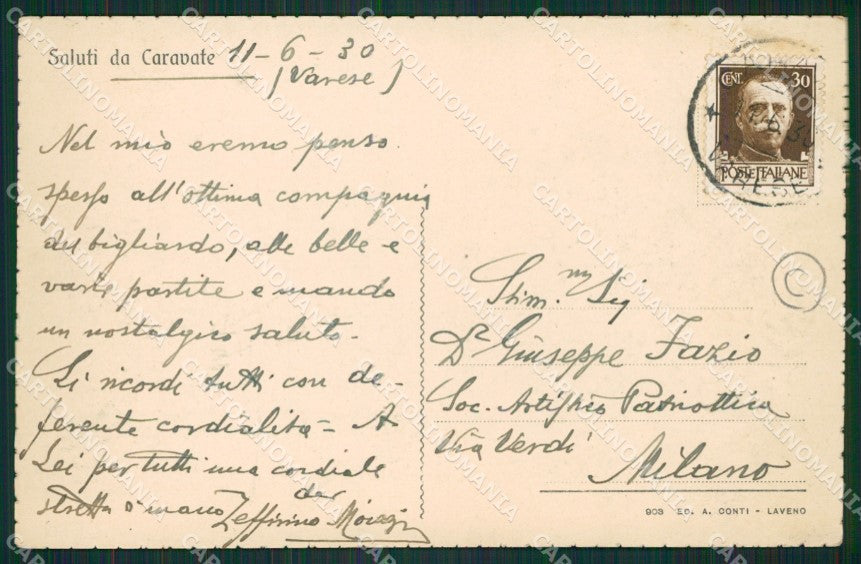 Saluti da Caravate 11-6-30
(Varese)
Nel mio eremo penso
spesso all'ottima compagnia
del bigliardo, alle belle e
varie partite e mando
un nostalgico saluto.
Li ricordi tutti con de-
ferente cordialità = A
Lei per tutti una cordiale
stretta di mano dar
Zeffirino
CENT. 30
POSTE ITALIANE
VARESE
C
Stim.mo Sig
Dr Giuseppe Fazio
Soc. Artistico Patriottica
Via Verdi
Milano
903 ED. A. CONTI - LAVENO
CARTOLINOMANIA